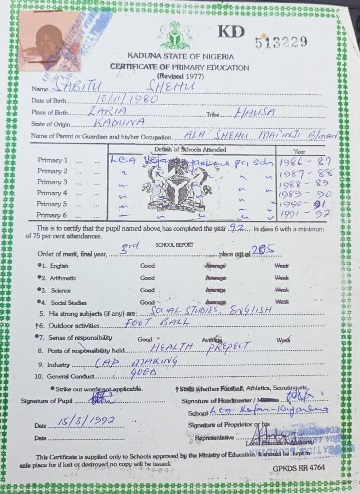 KD 513229
KADUNA STATE OF NIGERIA
CERTIFICATE OF PRIMARY EDUCATION
(Revised 1977)
Name SABITU SHEHU
Date of Birth 10/11/1980
Place of Birth ZARIA Tribe HAUSA
State of Origin KADUNA
Name of Parent or Guardian and his Occupation ALH SHEHU
Details of Schools Attended Year
Primary 1 LEA Kofan 1986 - 87
Primary 2 1987 - 88
Primary 3 1988 - 89
Primary 4 1989 - 90
Primary 5 1990 - 91
Primary 6 1991 - 92
This is to certify that the pupil named above, has completed the year 92 in class 6 with a minimum
of 75 per cent attendances.
SCHOOL REPORT
Order of merit, final year, 3rd place out of 205
*1. English Good Average Weak
*2. Arithmetic Good Average Weak
*3. Science Good Average Weak
*4. Social Studies Good Average Weak
5. His strong subjects (if any) are: SOCIAL STUDIES, ENGLISH
†6. Outdoor activities FOOT BALL
*7. Sense of responsibility Good Average Weak
8. Posts of responsibility held HEALTH PREFECT
9. Industry CAP MAKING
10. General Conduct GOOD
*Strike out words not applicable. †State whether Football, Athletics, Scouting etc.
Signature of Pupil Signature of Headmaster /
School LEA Kofan
Date 15/5/1992 Signature of Proprietor or his
Date Representative
This Certificate is supplied only to Schools approved by the Ministry of Education. It should be kept in
safe place for if lost or destroyed no copy will be issued.
GPKDS RR 4764